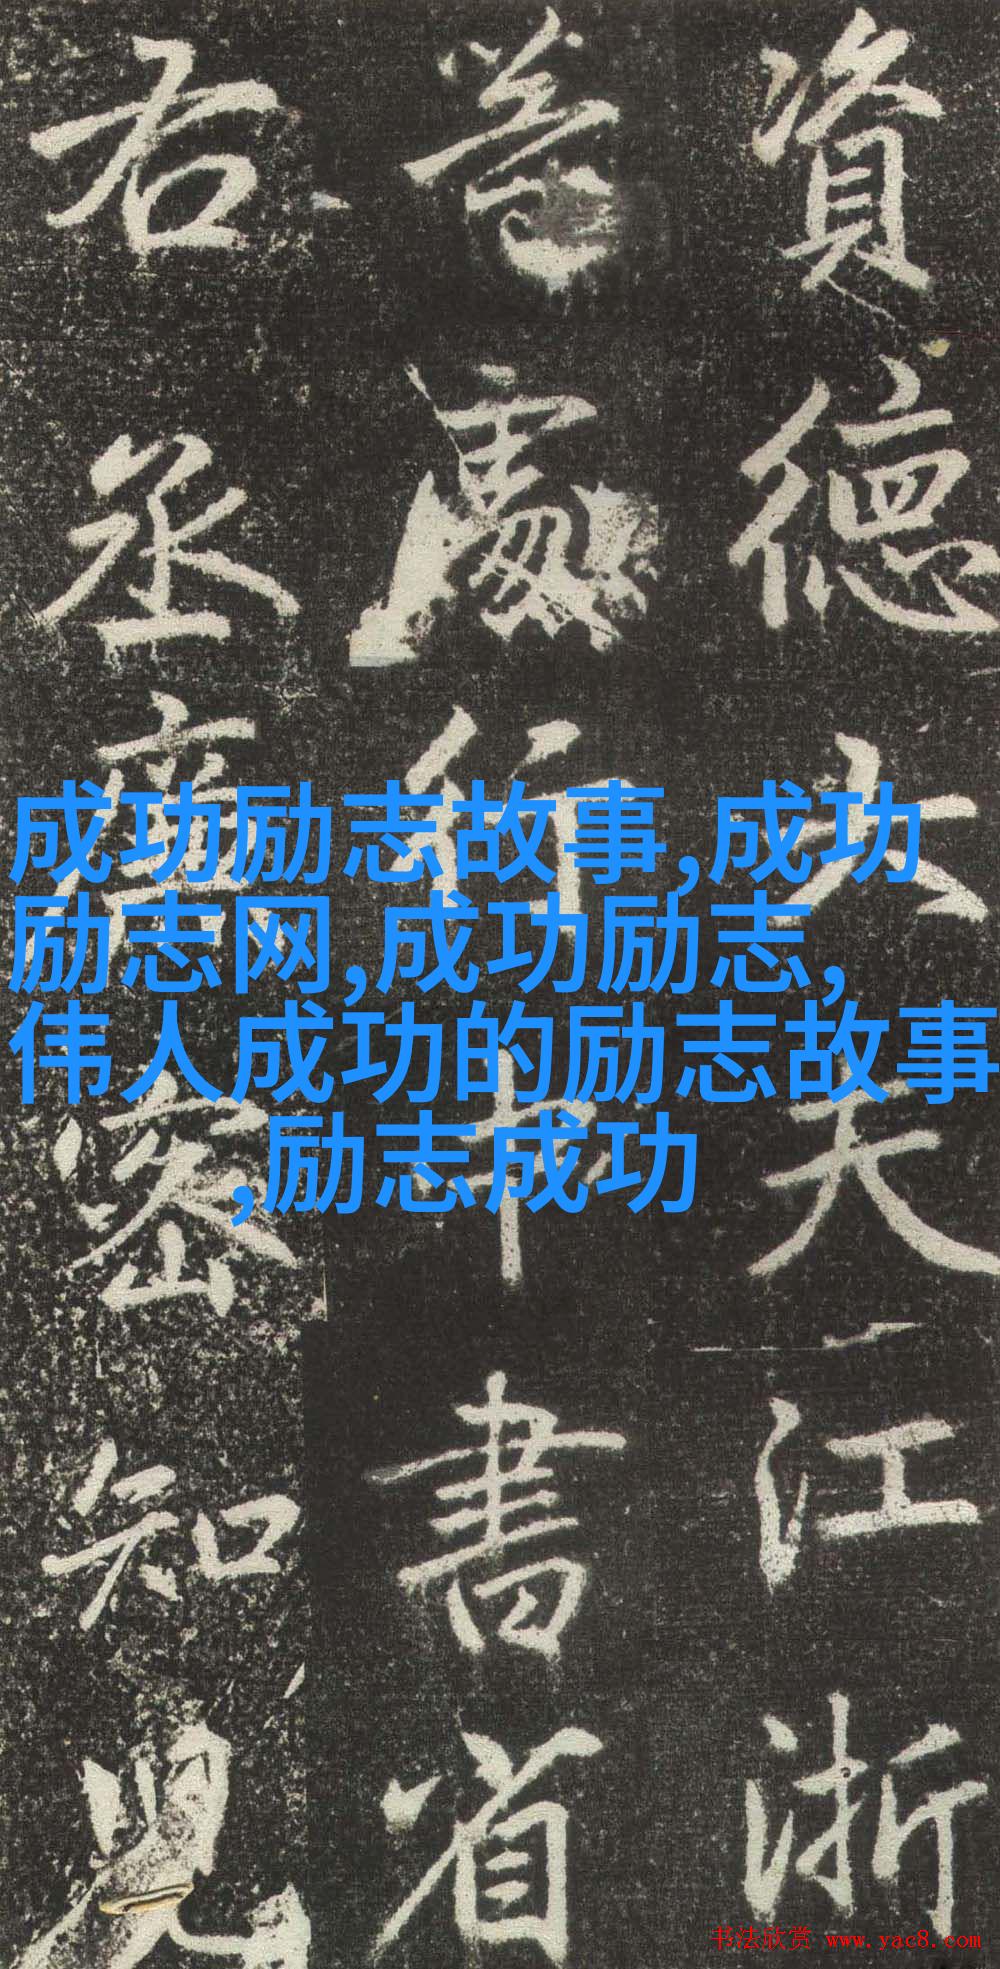 資德大夫江浙
等處行中書省
右丞廉密知兒
成功励志故事,成功
励志网,成功励志,
伟人成功的励志故事
,励志成功
书法欣赏 www.yac8.com